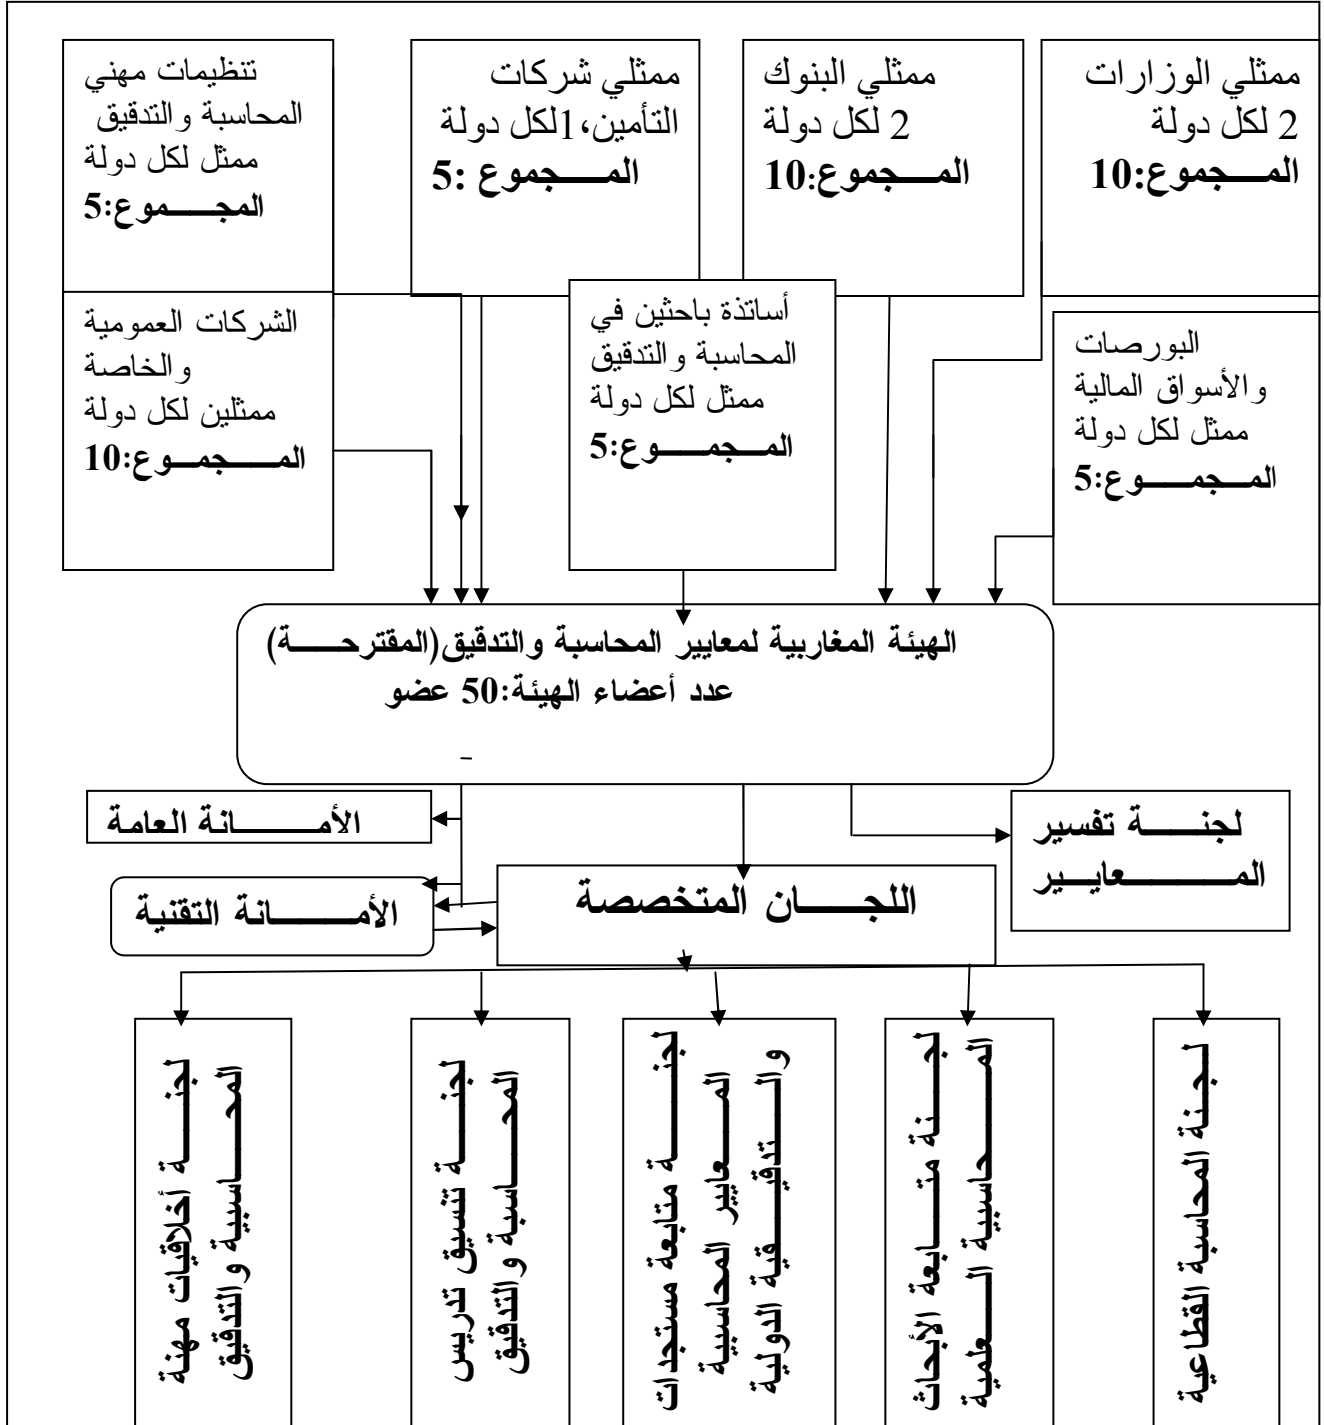 ممثلي الوزارات
2 لكل دولة
المـــجموع:10
ممثلي البنوك
2 لكل دولة
المـــجموع:10
ممثلي شركات
التأمين،1لكل دولة
المـــجموع :5
تنظيمات مهني
المحاسبة والتدقيق
ممثل لكل دولة
المجـــموع:5
البورصات
والأسواق المالية
ممثل لكل دولة
المـــجمـــوع:5
أساتذة باحثين في
المحاسبة والتدقيق
ممثل لكل دولة
المـــجمـــوع:5
الشركات العمومية
والخاصة
ممثلين لكل دولة
المـــجمـــوع:10
الهيئة المغاربية لمعايير المحاسبة والتدقيق(المقترحـــة)
عدد أعضاء الهيئة:50 عضو
لجنـــة تفسير
المـــعايـــير
الأمـــانة العامة
اللجـــان المتخصصة
الأمـــانة التقنية
لـجـنة المحاسبة القطاعية
لجـــنة متـــابعة الأبحاث
المـــحاسبية الـــعلمية
لجنـــة متابعة مستجدات
المـــعايير المحاسبية
والـــتدقيـــقية الدولية
لجنـــة تنسيق تدريس
المحـــاسبة والتدقيق
لجنـــة أخلاقيات مهنة
المحـــاسبية والتدقيق